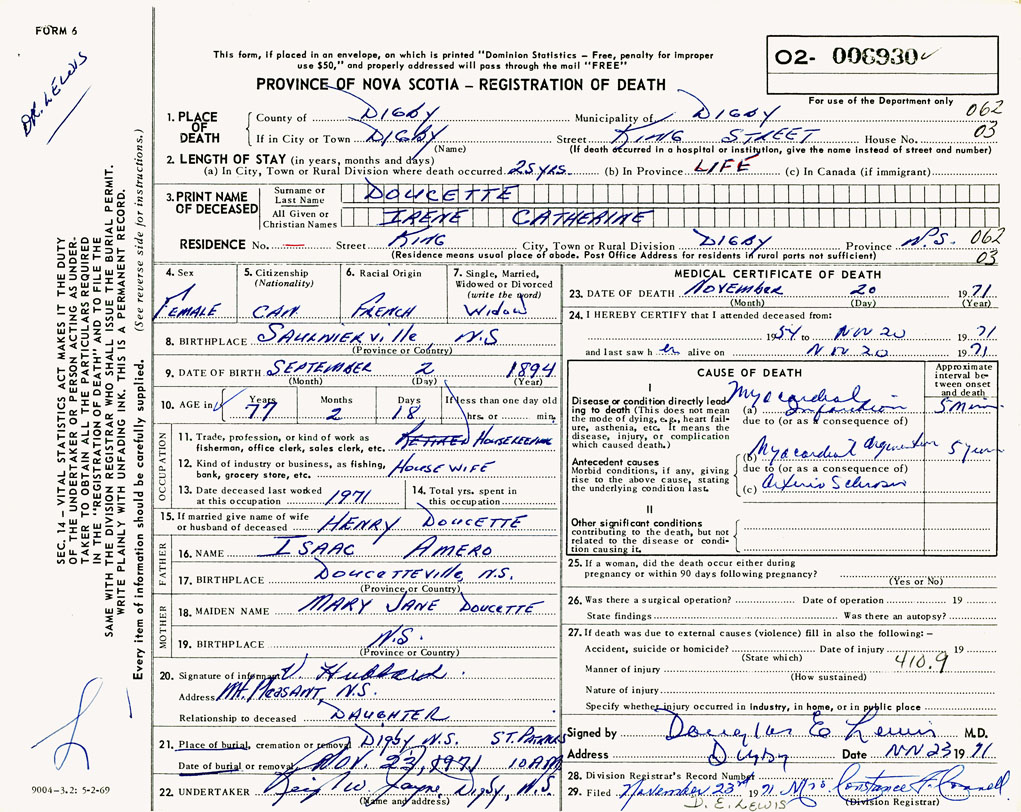 FORM 6
DR. LEWIS
This form, if placed in an envelope, on which is printed "Dominion Statistics – Free, penalty for improper
use $50," and properly addressed will pass through the mail "FREE"
PROVINCE OF NOVA SCOTIA – REGISTRATION OF DEATH
O2- 006930
For use of the Department only
1. PLACE OF DEATH County of DIGBY Municipality of DIGBY 062
If in City or Town DIGBY Street KING STREET House No. 03
(Name) (If death occurred in a hospital or institution, give the name instead of street and number)
2. LENGTH OF STAY (in years, months and days)
(a) In City, Town or Rural Division where death occurred 25 YRS. (b) In Province LIFE (c) In Canada (if immigrant)
3. PRINT NAME OF DECEASED Surname or Last Name DOUCETTE
All Given or Christian Names IRENE CATHERINE
RESIDENCE No. — Street KING City, Town or Rural Division DIGBY Province N.S. 062
(Residence means usual place of abode. Post Office Address for residents in rural parts not sufficient) 03
4. Sex FEMALE
5. Citizenship (Nationality) CAN.
6. Racial Origin FRENCH
7. Single, Married, Widowed or Divorced (write the word) WIDOW
8. BIRTHPLACE SAULNIERVILLE N.S
(Province or Country)
9. DATE OF BIRTH SEPTEMBER 2 1894
(Month) (Day) (Year)
10. AGE in Years 77 Months 2 Days 18 If less than one day old hrs. or min.
OCCUPATION
11. Trade, profession, or kind of work as fisherman, office clerk, sales clerk, etc. RETIRED HOUSEKEEPING
12. Kind of industry or business, as fishing, bank, grocery store, etc. HOUSEWIFE
13. Date deceased last worked at this occupation 1971
14. Total yrs. spent in this occupation
15. If married give name of wife or husband of deceased HENRY DOUCETTE
FATHER
16. NAME ISAAC AMERO
17. BIRTHPLACE DOUCETTEVILLE, N.S.
(Province, or Country)
MOTHER
18. MAIDEN NAME MARY JANE DOUCETTE
19. BIRTHPLACE N.S.
(Province or Country)
20. Signature of informant V. Hubbard
Address MT. PLEASANT, N.S.
Relationship to deceased DAUGHTER
21. Place of burial, cremation or removal DIGBY N.S. ST. PATRICKS
Date of burial or removal NOV. 23, 1971 10 AM
22. UNDERTAKER Jayne, Digby, N.S.
(Name and address)
MEDICAL CERTIFICATE OF DEATH
23. DATE OF DEATH NOVEMBER 20 1971
(Month) (Day) (Year)
24. I HEREBY CERTIFY that I attended deceased from:
1954 to NOV 20 1971
and last saw her alive on NOV 20 1971
CAUSE OF DEATH
Approximate interval between onset and death
I
Disease or condition directly leading to death (This does not mean the mode of dying, e.g., heart failure, asthenia, etc. It means the disease, injury, or complication which caused death.)
(a) Myocardial Infarction 5 min
due to (or as a consequence of)
Antecedent causes
Morbid conditions, if any, giving rise to the above cause, stating the underlying condition last.
(b) Myocardial 5 years
due to (or as a consequence of)
(c) Arterio Sclerosis
II
Other significant conditions
contributing to the death, but not related to the disease or condition causing it.
25. If a woman, did the death occur either during pregnancy or within 90 days following pregnancy?
(Yes or No)
26. Was there a surgical operation? Date of operation 19
State findings Was there an autopsy?
27. If death was due to external causes (violence) fill in also the following: –
Accident, suicide or homicide? Date of injury 19
(State which) 410.9
Manner of injury
(How sustained)
Nature of injury
Specify whether injury occurred in industry, in home, or in public place
Signed by Douglas E Lewis M.D.
Address Digby Date NOV 23 1971
28. Division Registrar's Record Number
29. Filed November 23rd 1971 Mrs. Constance A. Connell
D. E. LEWIS (Division Registrar)
SEC. 14 – VITAL STATISTICS ACT MAKES IT THE DUTY
OF THE UNDERTAKER OR PERSON ACTING AS UNDER-
TAKER TO OBTAIN ALL THE PARTICULARS REQUIRED
IN THE "REGISTRATION OF DEATH" AND TO FILE THE
SAME WITH THE DIVISION REGISTRAR WHO SHALL ISSUE THE BURIAL PERMIT.
WRITE PLAINLY WITH UNFADING INK. THIS IS A PERMANENT RECORD.
Every item of information should be carefully supplied. (See reverse side for instructions.)
9004-3.2: 5-2-69